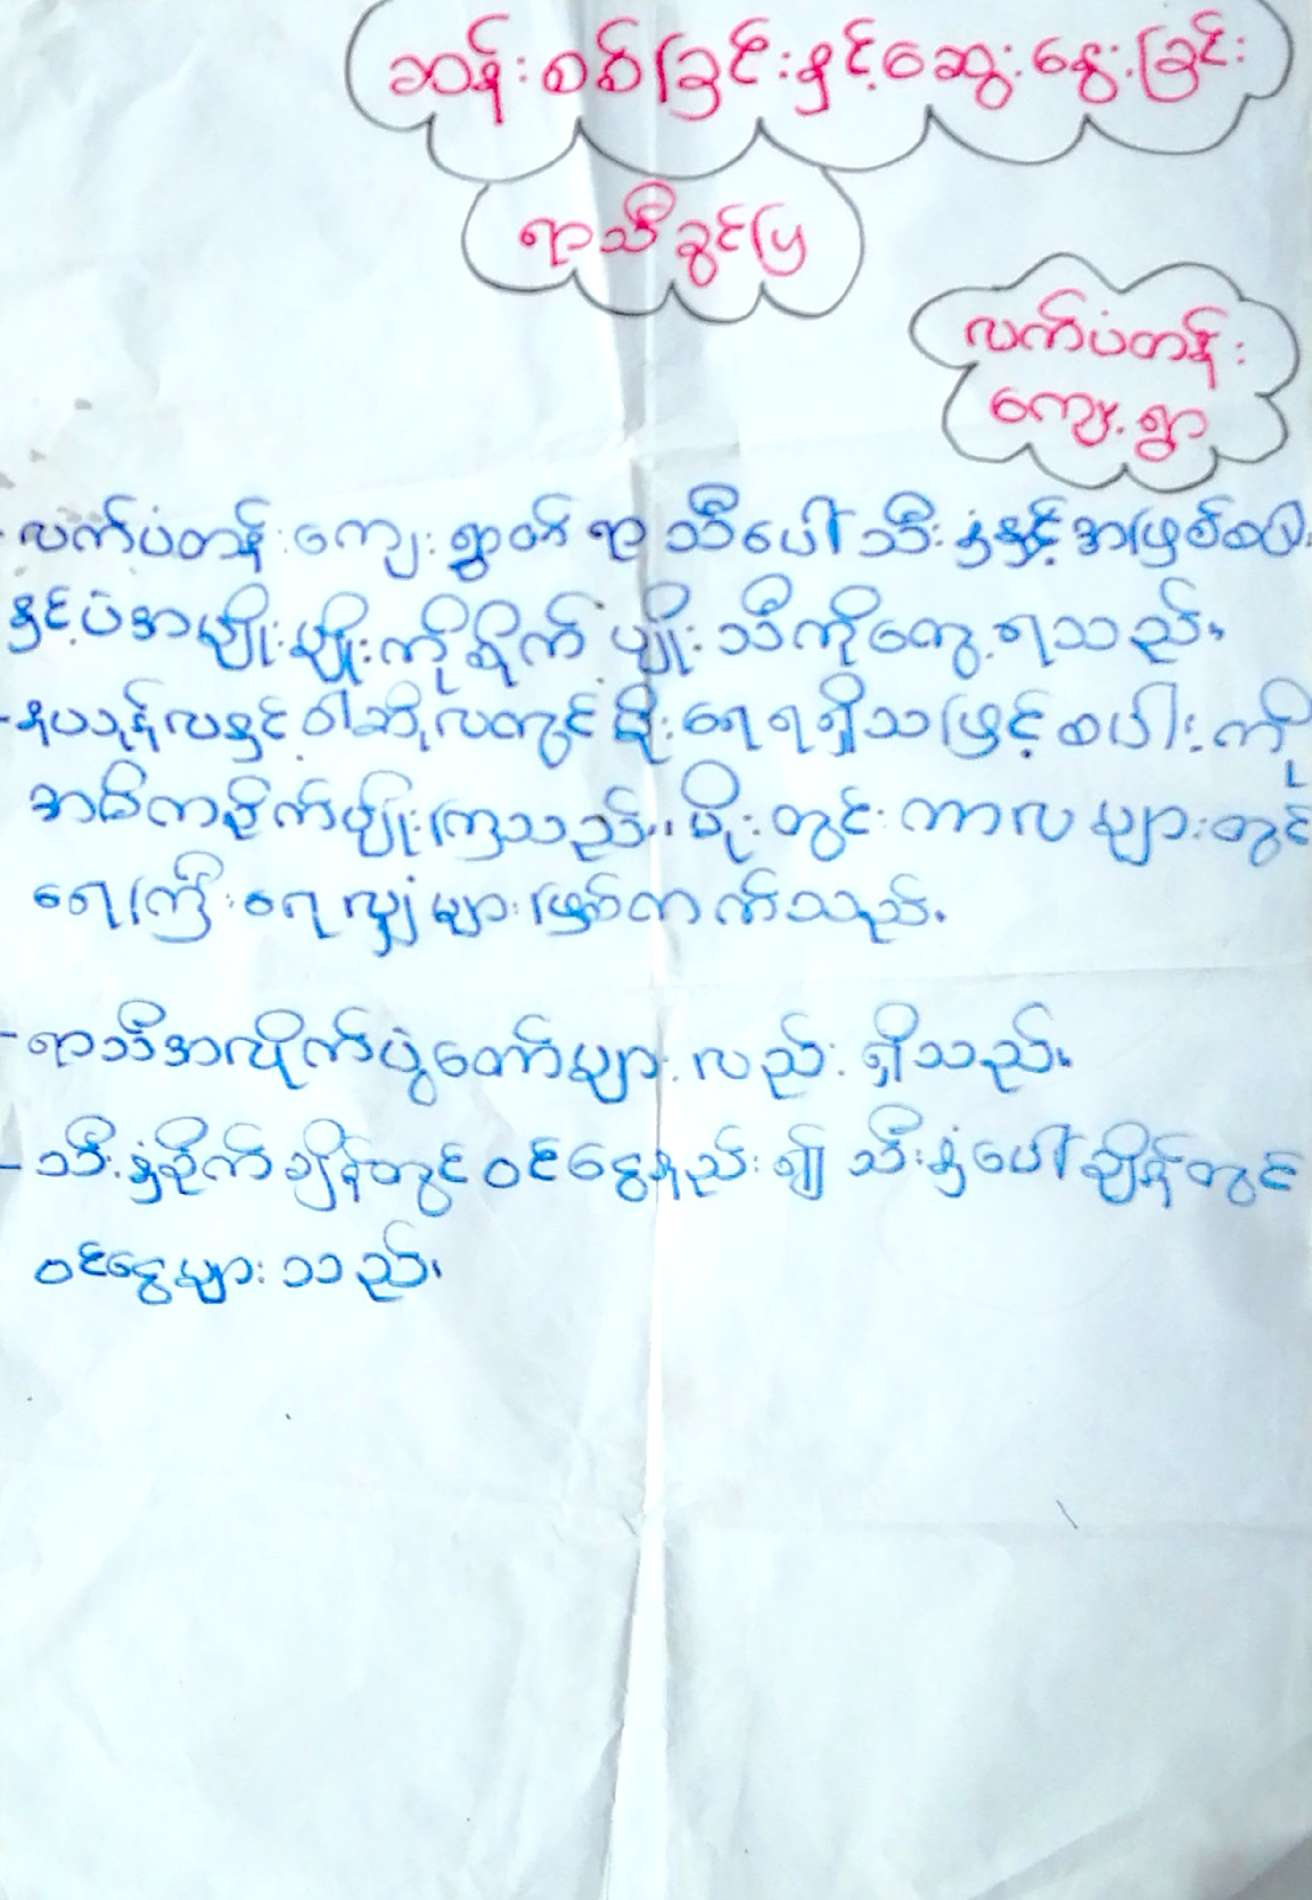 ဆန်းစစ်ခြင်းနှင့်ဆွေးနွေးခြင်း
ရာသီခွင်ပြ
လက်ပံတန်း
ကျေးရွာ
- လက်ပံတန်းကျေးရွာတစ် ရာသီပေါ်သီးနှံနှင့်အဖြစ်စပါး
နှင့်ပဲအမျိုးမျိုးကိုစိုက် ပျိုးသီကိုတွေ့ရသည်။
- နယုန်လနှင့်ဝါဆိုလတွင်မိုးရေရရှိသဖြင့်စပါးကို
အဓိကစိုက်ပျိုးကြသည်။ မိုးတွင်းကာလများတွင်
ရေကြီးရေလျှံများဖြစ်တက်သည်။
- ရာသီအလိုက်ပွဲတော်များလည်းရှိသည်။
- သီးနှံစိုက်ချိန်တွင်ဝင်ငွေနည်း၍ သီးနှံပေါ်ချိန်တွင်
ဝင်ငွေများသည်။